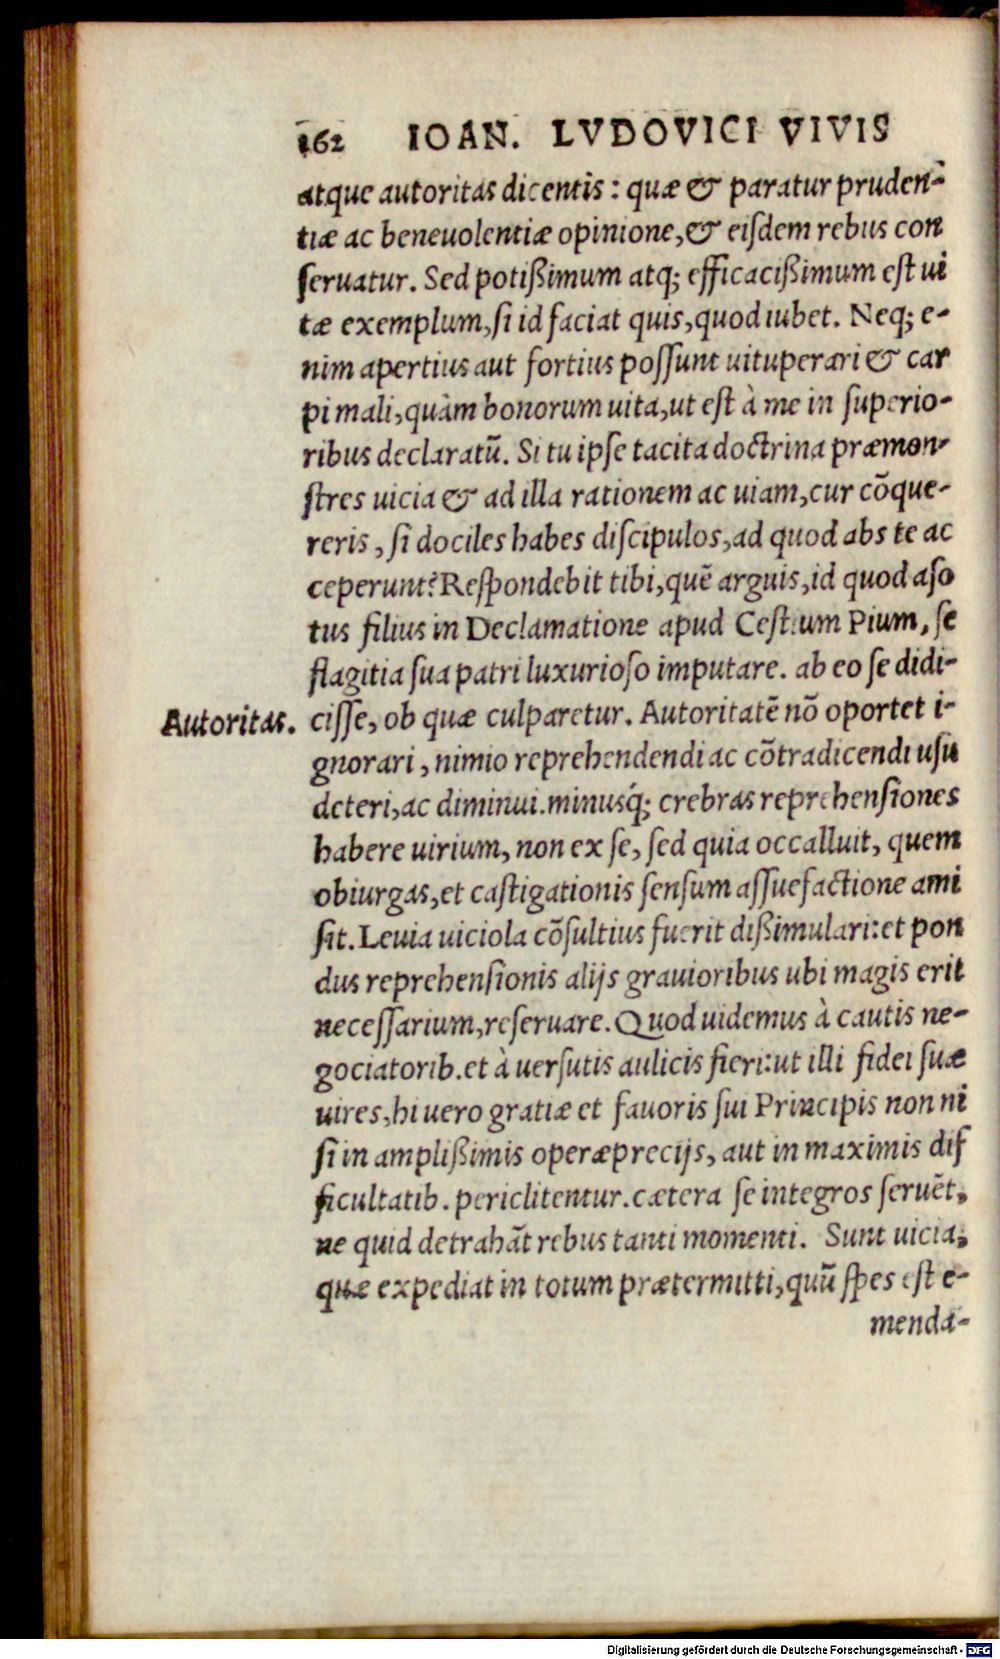 162 IOAN. LVDOVICI VIVIS
atque autoritas dicentis : quæ & paratur pruden-
tiæ ac beneuolentiæ opinione,& eiſdem rebus con
ſeruatur. Sed potißimum atq; efficacißimum eſt ui
tæ exemplum,ſi id faciat quis,quod iubet. Neq; e-
nim apertius aut fortius poſſunt uituperari & car
pi mali,quàm bonorum uita,ut eſt à me in ſuperio-
ribus declaratū. Si tu ipſe tacita doctrina præmon-
ſtres uicia & ad illa rationem ac uiam,cur cōque-
reris, ſi dociles habes diſcipulos,ad quod abs te ac
ceperunt? Reſpondebit tibi,quē arguis,id quod aſo
tus filius in Declamatione apud Ceſtium Pium, ſe
flagitia ſua patri luxurioſo imputare. ab eo ſe didi-
Autoritas. ciſſe, ob quæ culparetur. Autoritatē nō oportet i-
gnorari, nimio reprehendendi ac cōtradicendi uſu
deteri,ac diminui.minusq́; crebras reprehenſiones
habere uirium, non ex ſe, ſed quia occalluit, quem
obiurgas,et caſtigationis ſenſum aſſuefactione ami
ſit. Leuia uiciola cōſultius fuerit dißimulari:et pon
dus reprehenſionis alijs grauioribus ubi magis erit
neceſſarium,reſeruare. Quod uidemus à cautis ne-
gociatorib.et à uerſutis aulicis fieri:ut illi fidei ſuæ
uires,hi uero gratiæ et fauoris ſui Principis non ni
ſi in amplißimis operæprecijs, aut in maximis dif
ficultatib. periclitentur.cætera ſe integros ſeruēt,
ne quid detrahāt rebus tanti momenti. Sunt uicia,
quæ expediat in totum prætermitti,quū ſpes eſt e-
menda-
Digitalisierung gefördert durch die Deutsche Forschungsgemeinschaft - DFG